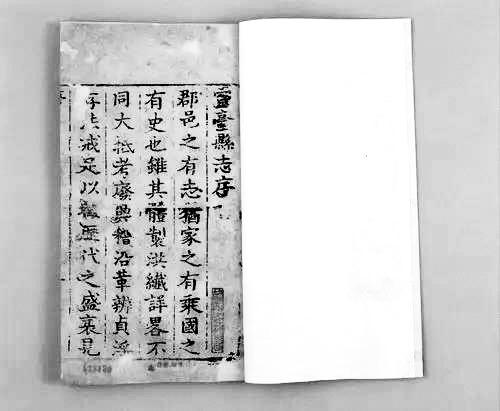 靈臺縣志序
郡邑之有志猶家之有乘國之
有史也雖其體製洪纖詳畧不
同大抵考廢興稽沿革辨貞淫
存法戒足以鑑歷代之盛衰見